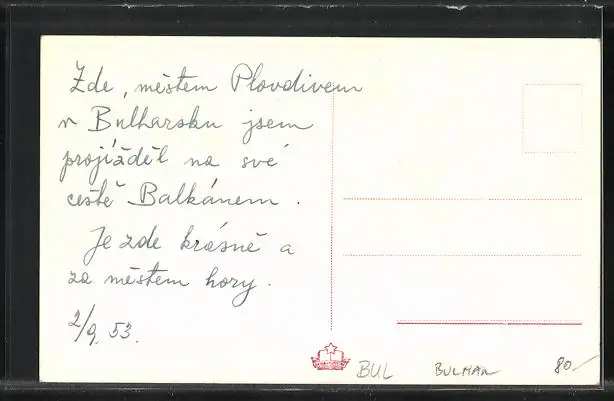 Zde, městem Plovdivem
v Bulharsku jsem
projížděl na své
cestě Balkánem.
Je zde krásně a
za městem hory.
2/9. 53.
BUL
80.-